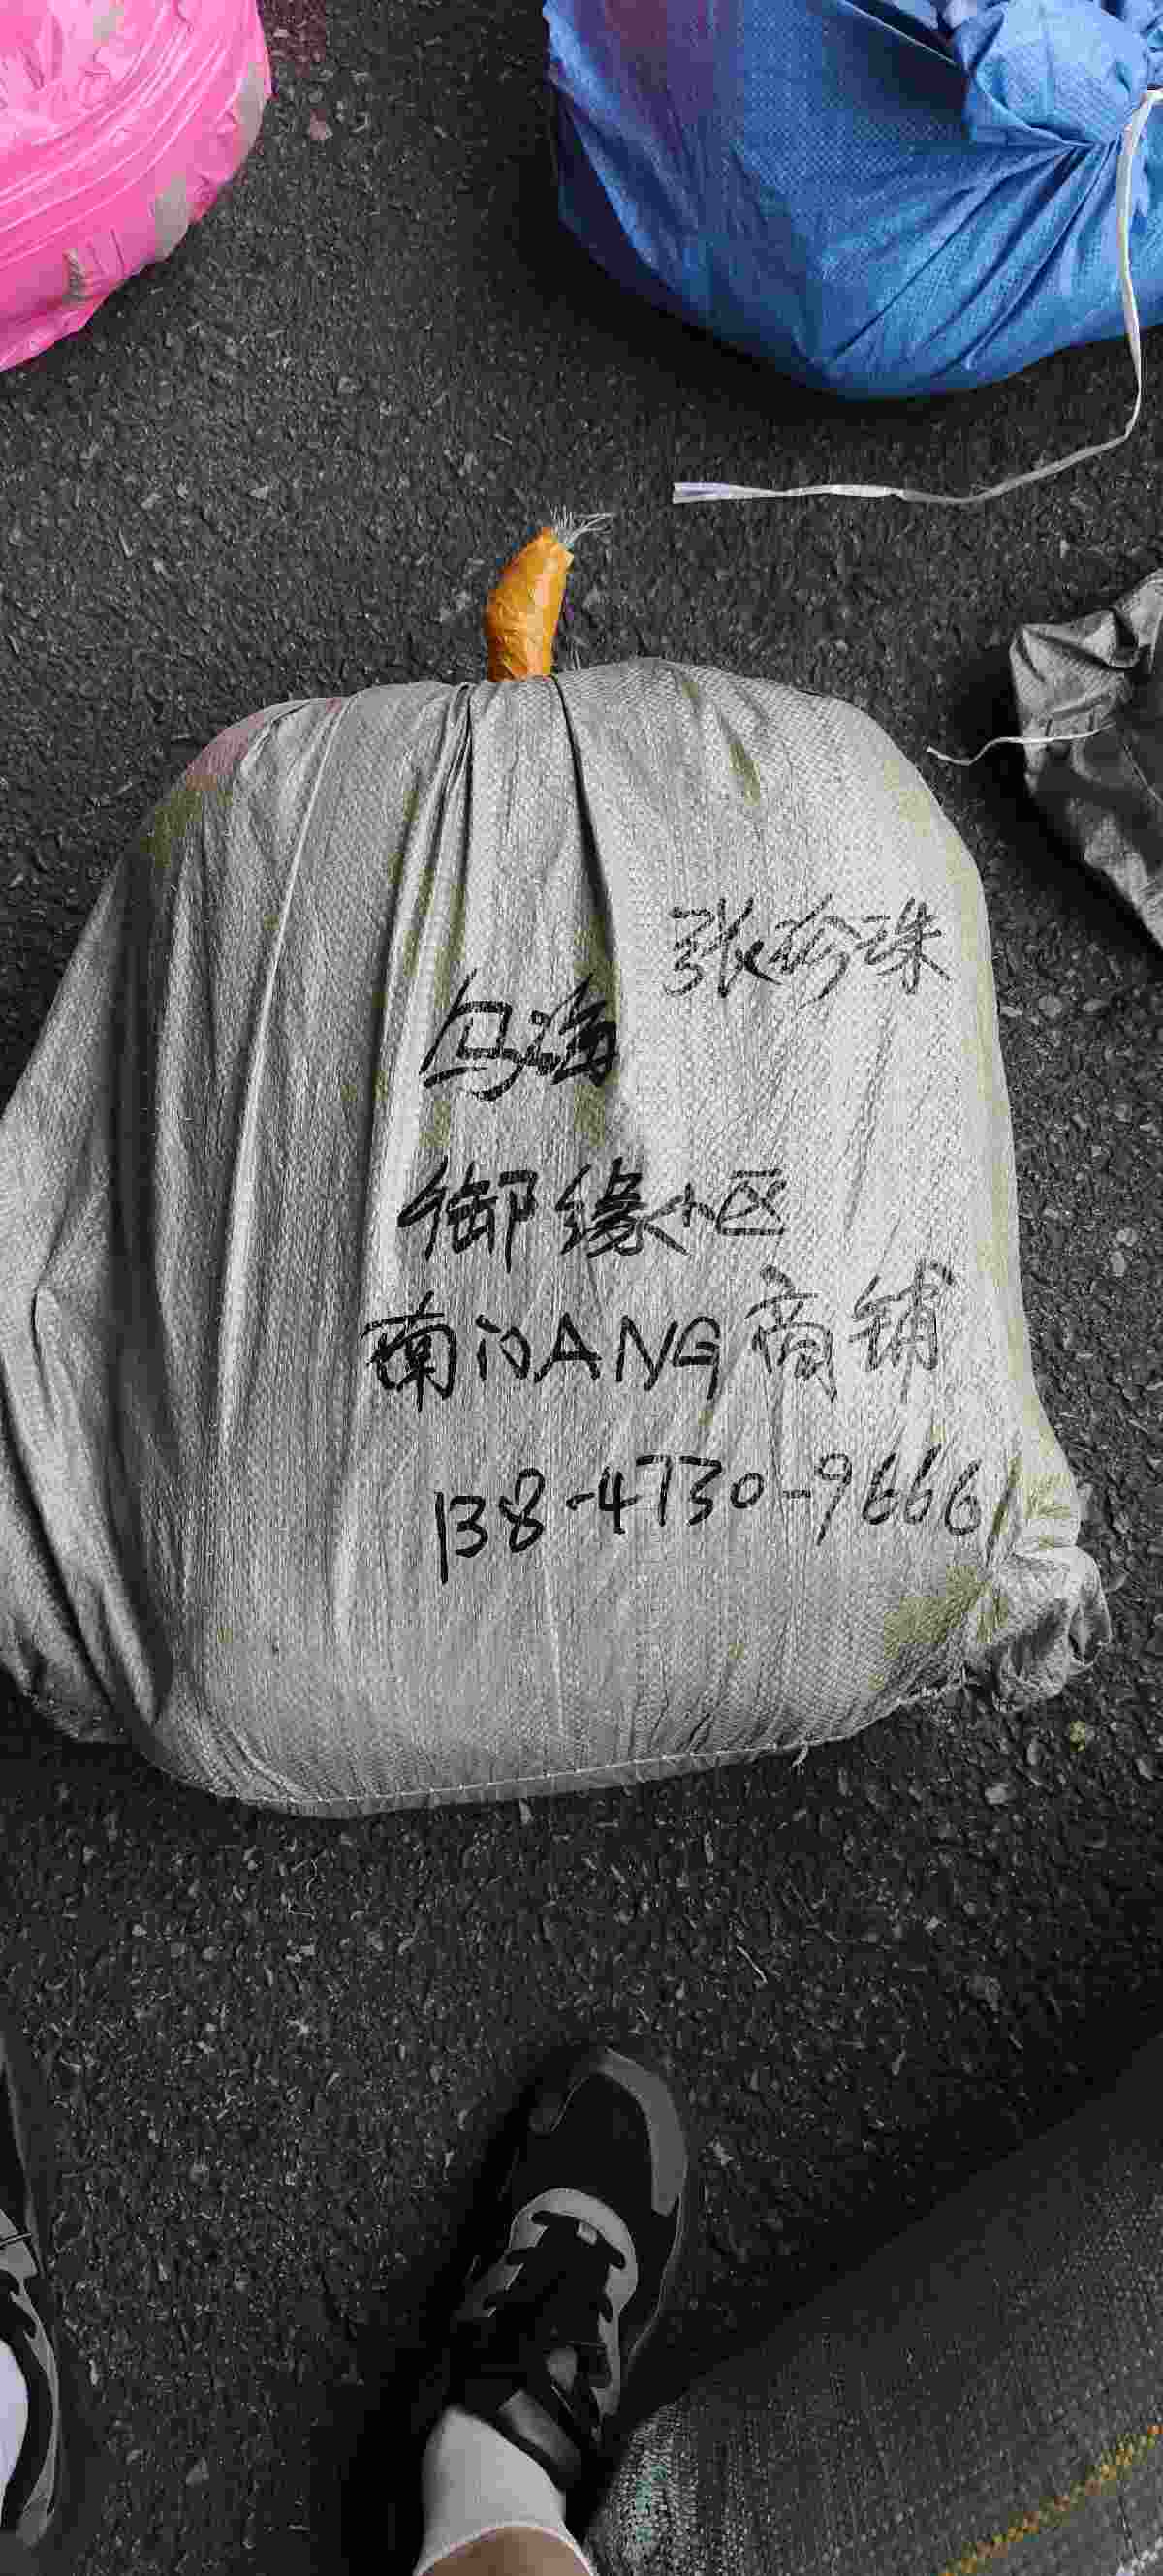 张珍珠
乌海
御缘小区
南门ANG商铺
138-4730-9666